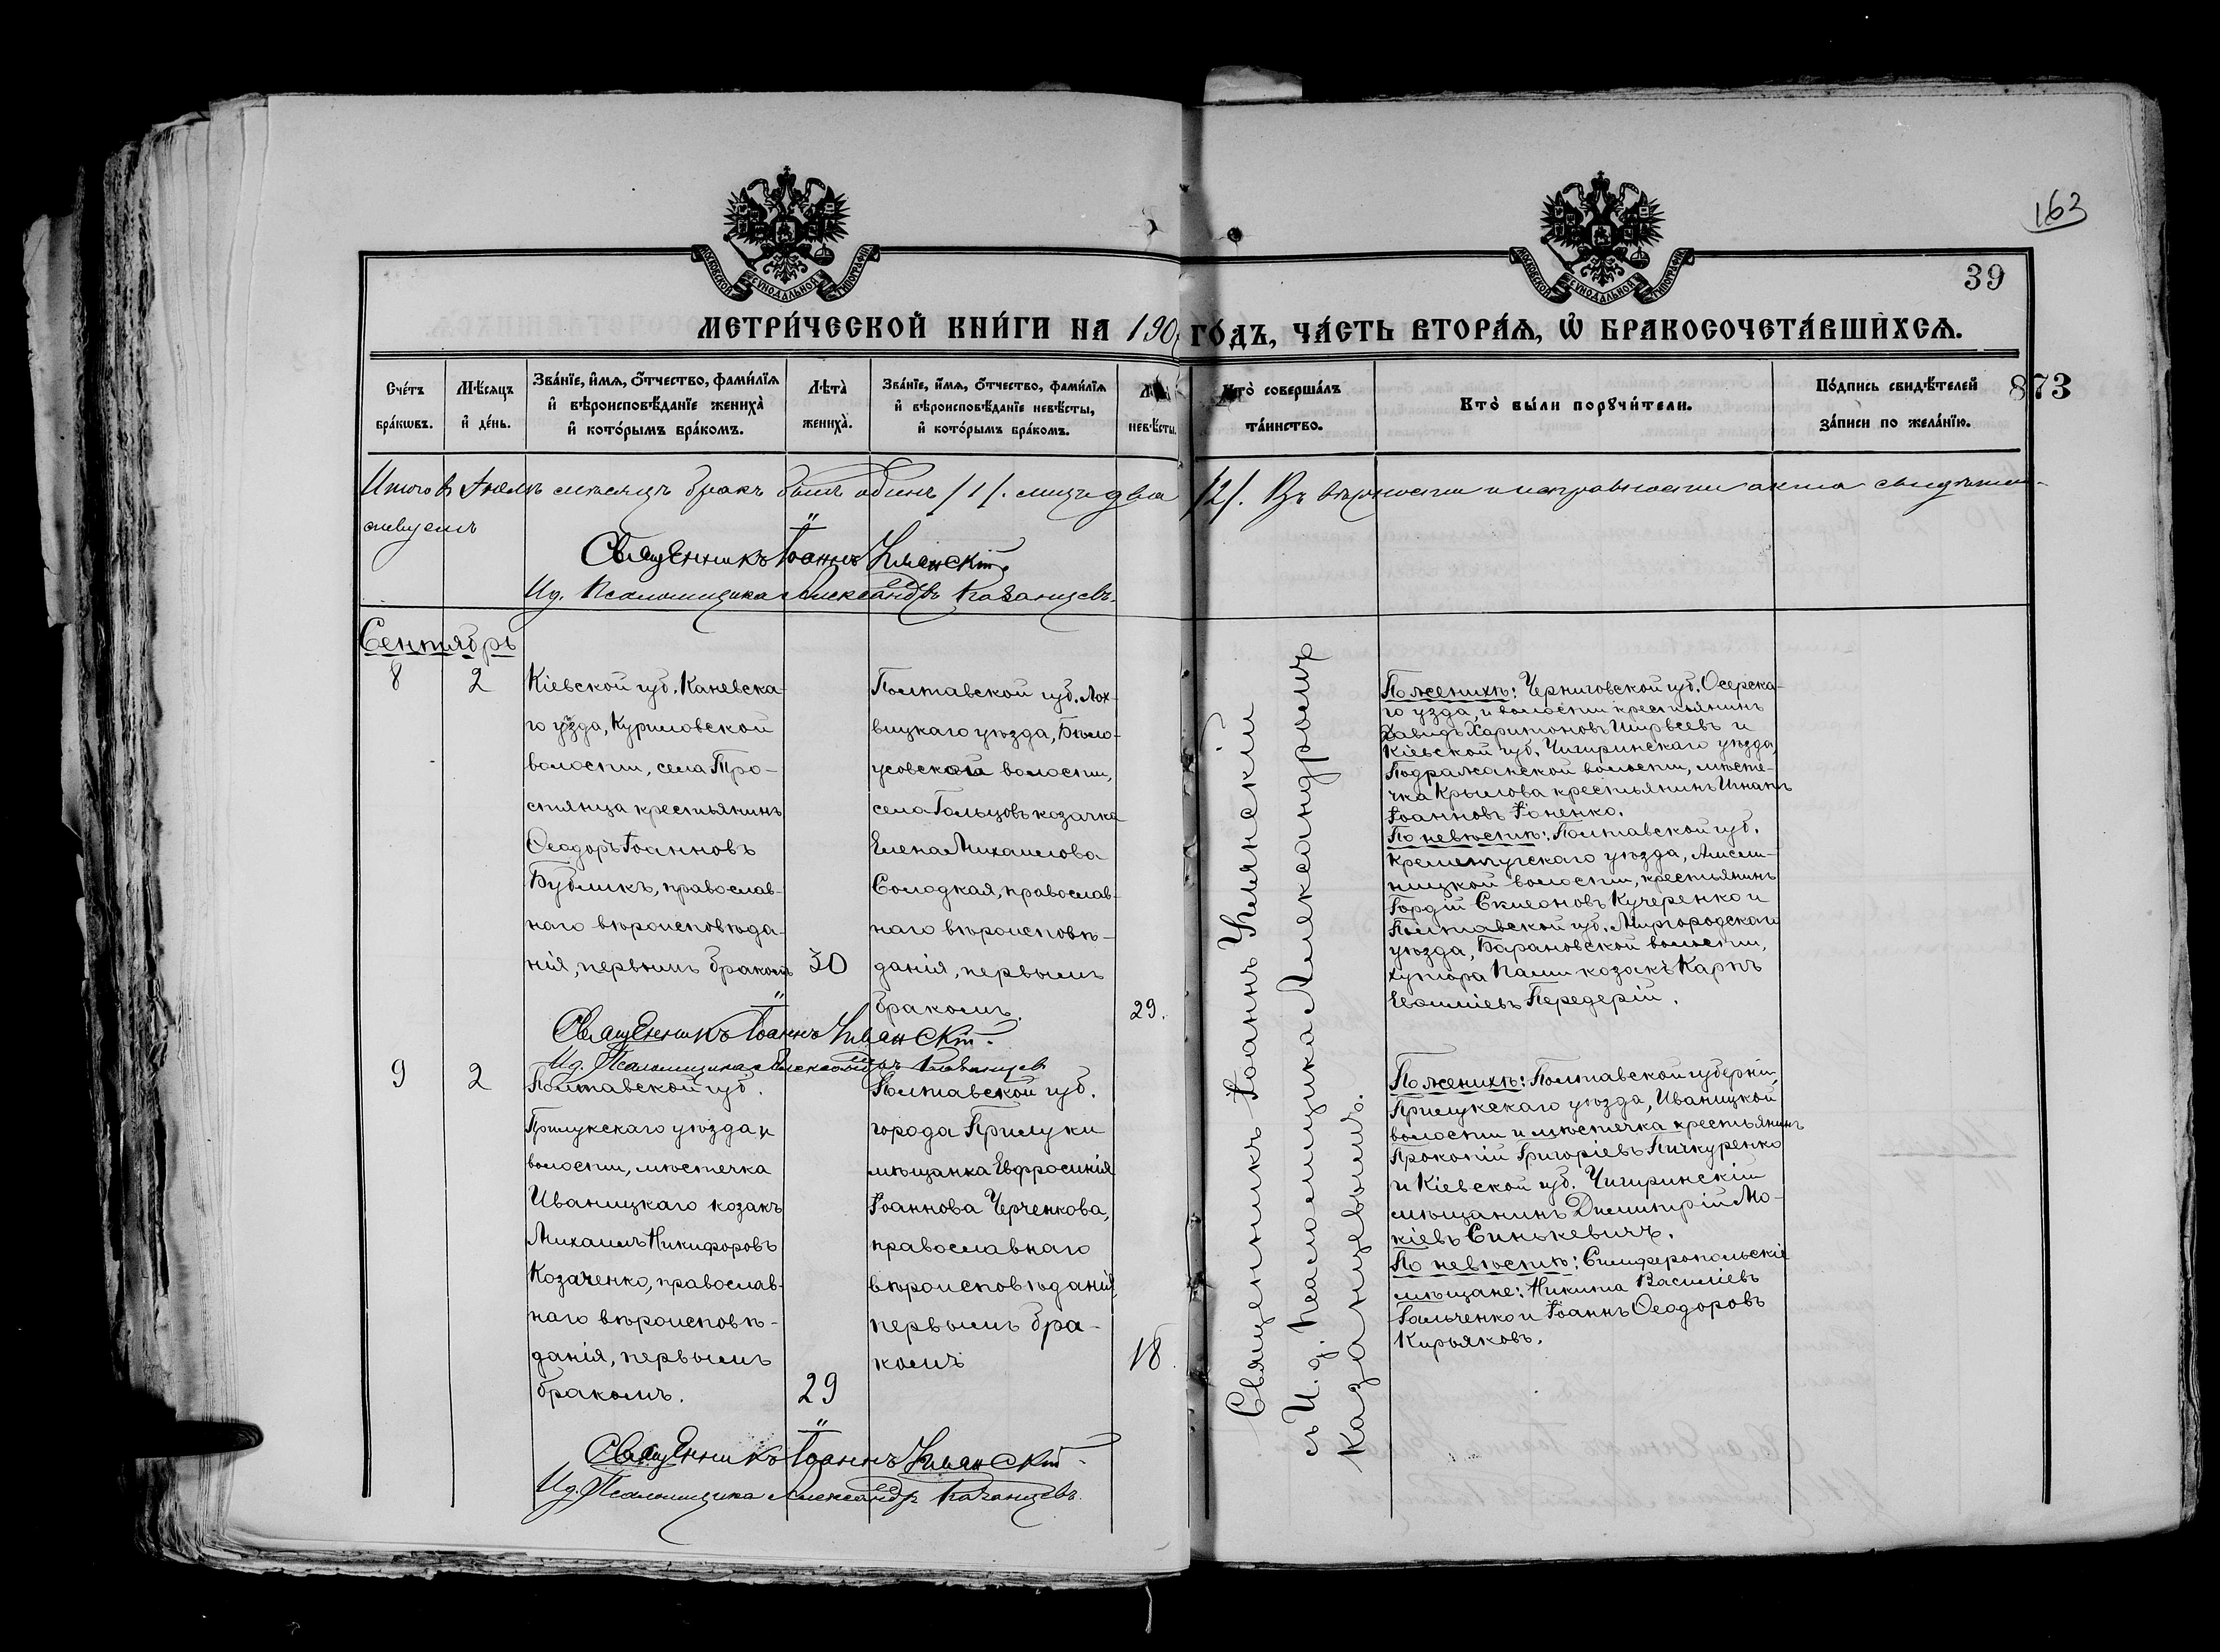 163
39
873
МОСКОВСКОЙ СУНОДАЛЬНОЙ ТИПОГРАФІИ
МОСКОВСКОЙ СУНОДАЛЬНОЙ ТИПОГРАФІИ
МЕТРИ́ЧЕСКОЙ КНИ́ГИ НА 190 ГО́ДЪ, ЧА́СТЬ ВТОРА́Я, Ѡ БРАКОСОЧЕТА́ВШИХСЯ.
Сче́тъ бра́кѡвъ.
Мѣ́сяцъ и де́нь.
Зва́нїе, и́мя, о́тчество, фами́лїя и вѣроисповѣ́данїе жениха̀ и кото́рымъ бра́комъ.
Лѣта̀ жениха̀.
Зва́нїе, и́мя, о́тчество, фами́лїя и вѣроисповѣ́данїе невѣ́сты, и кото́рымъ бра́комъ.
невѣ́сты.
Кто̀ соверша́лъ та́инство.
Кто̀ бы́ли поручи́тели.
По́дпись свидѣ́телей за́писи по жела́нїю.
Итого въ Іюлѣ мѣсяцѣ бракъ былъ одинъ /1/. лицъ два /2/. Въ вѣрности и исправности акта свидѣтель-
ствуемъ
Священникъ Іоаннъ Уманскій.
Ид. Псаломщика Александръ Казанцевъ.
Сентябрь
8
2
Кіевской губ. Каневска-
го уѣзда, Куриловской
волости, села Тро-
стянца крестьянинъ
Ѳеодоръ Іоанновъ
Бубликъ, православ-
наго вѣроисповѣда-
нія, первымъ бракомъ
30
Полтавской губ. Лох-
вицкаго уѣзда, Бѣло-
усовской волости,
села Гольцовъ козачка
Елена Михаилова
Солодкая, православ-
наго вѣроисповѣ-
данія, первымъ
бракомъ.
29.
Священникъ Іоаннъ Уманскій.
Ид. Псаломщика Александръ Казанцев
Священникъ Іоаннъ Уманскій
съ И. д. псаломщика Александромъ
Казанцевымъ.
По женихѣ: Черниговской губ. Остерска-
го уѣзда, и волости крестьянинъ
Давидъ Харитоновъ и
Кіевской губ. Чигиринскаго уѣзда,
Подрожанской волости, мѣсте-
чка Крылова крестьянинъ Игнатъ
Іоанновъ Іоненко.
По невѣстѣ: Полтавской губ.
Кременчугскаго уѣзда,
волости, крестьянинъ
Гордій Симеоновъ Кучеренко и
Полтавской губ. Миргородскаго
уѣзда, Барановской волости,
хутора козакъ Карпъ
Евѳиміевъ Передерій.
9
2
Полтавской губ.
Прилукскаго уѣзда и
волости, мѣстечка
Иваницкаго козакъ
Михаилъ Никифоровъ
Козаченко, православ-
наго вѣроисповѣ-
данія, первымъ
бракомъ.
29
Полтавской губ.
города Прилуки
мѣщанка Евфросинія
Іоаннова Черченкова,
православнаго
вѣроисповѣданія,
первымъ бра-
комъ
18.
По женихѣ: Полтавской губерніи,
Прилукскаго уѣзда, Иваницкой
волости и мѣстечка крестьянинъ
Прокопій Григоріевъ Пичкуренко
и Кіевской губ. Чигиринскій
мѣщанинъ Димитрій Мо-
кіевъ Синькевичъ.
По невѣстѣ: Симферопольскіе
мѣщане: Никита Василіевъ
Гольченко и Іоаннъ Ѳеодоровъ
Кирьяковъ.
Священникъ Іоаннъ Уманскій
Ид. Псаломщика Александръ Казанцевъ.